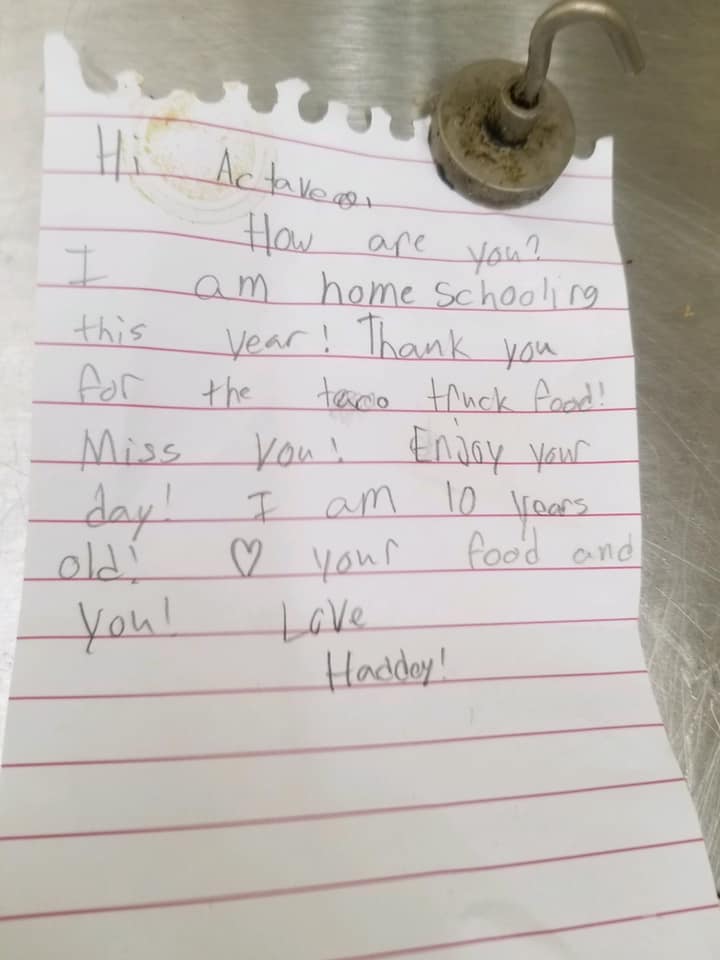 Hi Actaveo,
How are you?
I am home schooling
this year! Thank you
for the taco truck food!
Miss you! Enjoy your
day! I am 10 years
old! ♡ your food and
you! Love
Haddey!